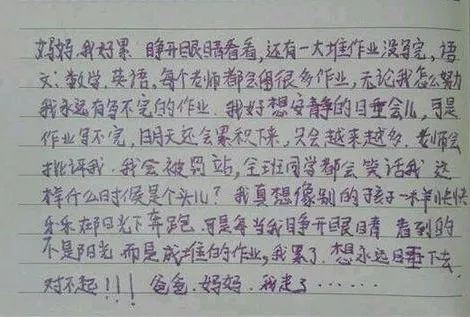 妈妈,我好累 睁开眼睛看看,还有一大堆作业没写完,语
文、数学、英语,每个老师都会留很多作业,无论我怎么努力
我永远有写不完的作业.我好想安静的睡会儿,可是
作业写不完,明天还会累积下来,只会越来越多,老师会
批评我.我会被罚站,全班同学都会笑话我 这
样什么时候是个头儿?我真想像别的孩子一样快快
乐乐在阳光下奔跑 可是每当我睁开眼睛 看到的
不是阳光 而是成堆的作业,我累了.想永远睡下去
对不起!!!爸爸.妈妈.我走了……